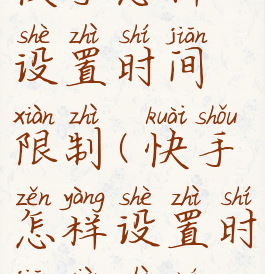 shè zhì shí jiān
设置时间
xiàn zhì kuài shǒu
限制(快手
zěn yàng shè zhì shí
怎样设置时